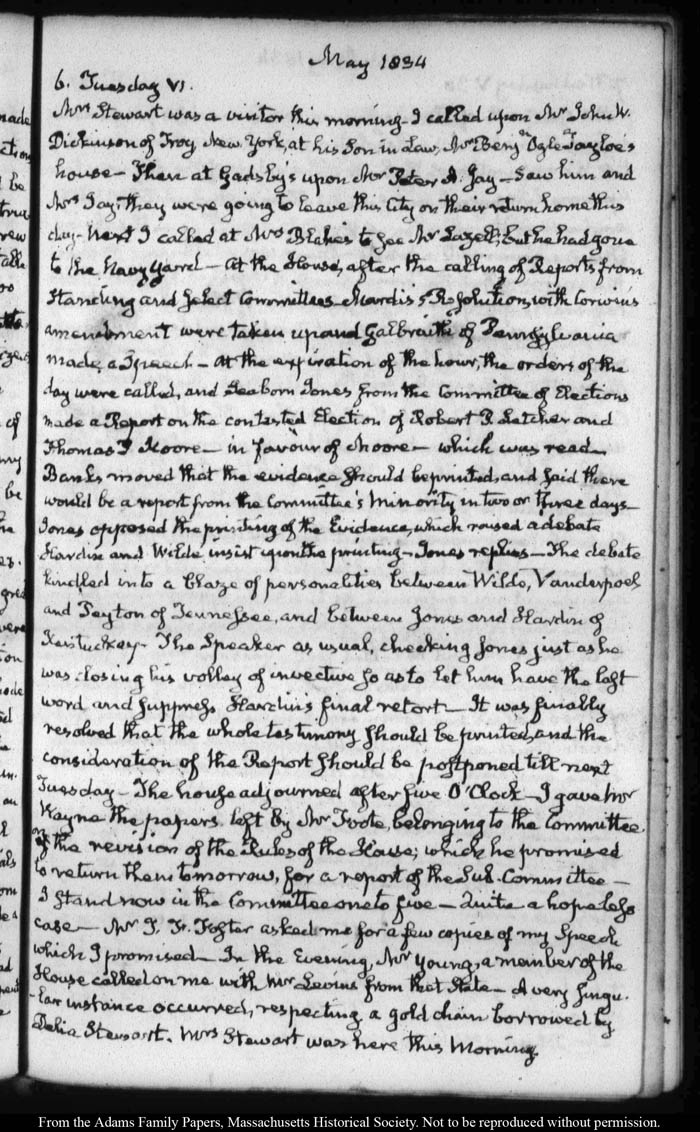 May 1834
6. Tuesday VI.
Mrs Stewart was a visitor this morning - I called upon Mr John W.
Dickinson of Troy New York, at his Son in Law, Mr Benjn Ogle Tayloe's
house - Then at Gadsby's upon Mr Peter A. Jay - saw him and
Mrs Jay; they were going to leave this City on their return home this
day - Next I called at Mrs Blake's to see Mr Lazell; but he had gone
to the Navy Yard - At the House, after the calling of Reports from
Standing and Select Committees Mardis's Resolution, with Corwin's
amendment were taken up and Galbraith of Pennsylvania
made a Speech - At the expiration of the hour, the orders of the
day were called, and Seaborn Jones from the Committee of Elections
made a Report on the contested Election of Robert P. Letcher and
Thomas P Moore - in favour of Moore - which was read -
Banks moved that the evidence should be printed, and said there
would be a report from the Committee's Minority in two or three days -
Jones opposed the printing of the Evidence, which roused a debate
Hardin and Wilde insist upon the printing - Jones replies - The debate
kindled into a blaze of personalities between Wilde, Vanderpoel
and Peyton of Tennessee, and between Jones and Hardin of
Kentuckey - The Speaker as usual, checking Jones just as he
was closing his volley of invective so as to let him have the last
word and suppress Hardin's final retort - It was finally
resolved that the whole testimony should be printed, and the
consideration of the Report should be postponed till next
Tuesday - The house adjourned after five O'Clock - I gave Mr
Wayne the papers left by Mr Foote, belonging to the Committee
on the revision of the Rules of the House; which he promised
to return them tomorrow, for a report of the Sub-Committee -
I stand now in the Committee one to five - Quite a hopeless
case - Mr Foster asked me for a few copies of my Speech
which I promised - In the Evening, Mr Young, a member of the
House called on me with Mr from that State - A very singu-
-lar instance occurred, respecting a gold chain borrowed by
Delia Stewart. Mrs Stewart was here this Morning.
From the Adams Family Papers, Massachusetts Historical Society. Not to be reproduced without permission.